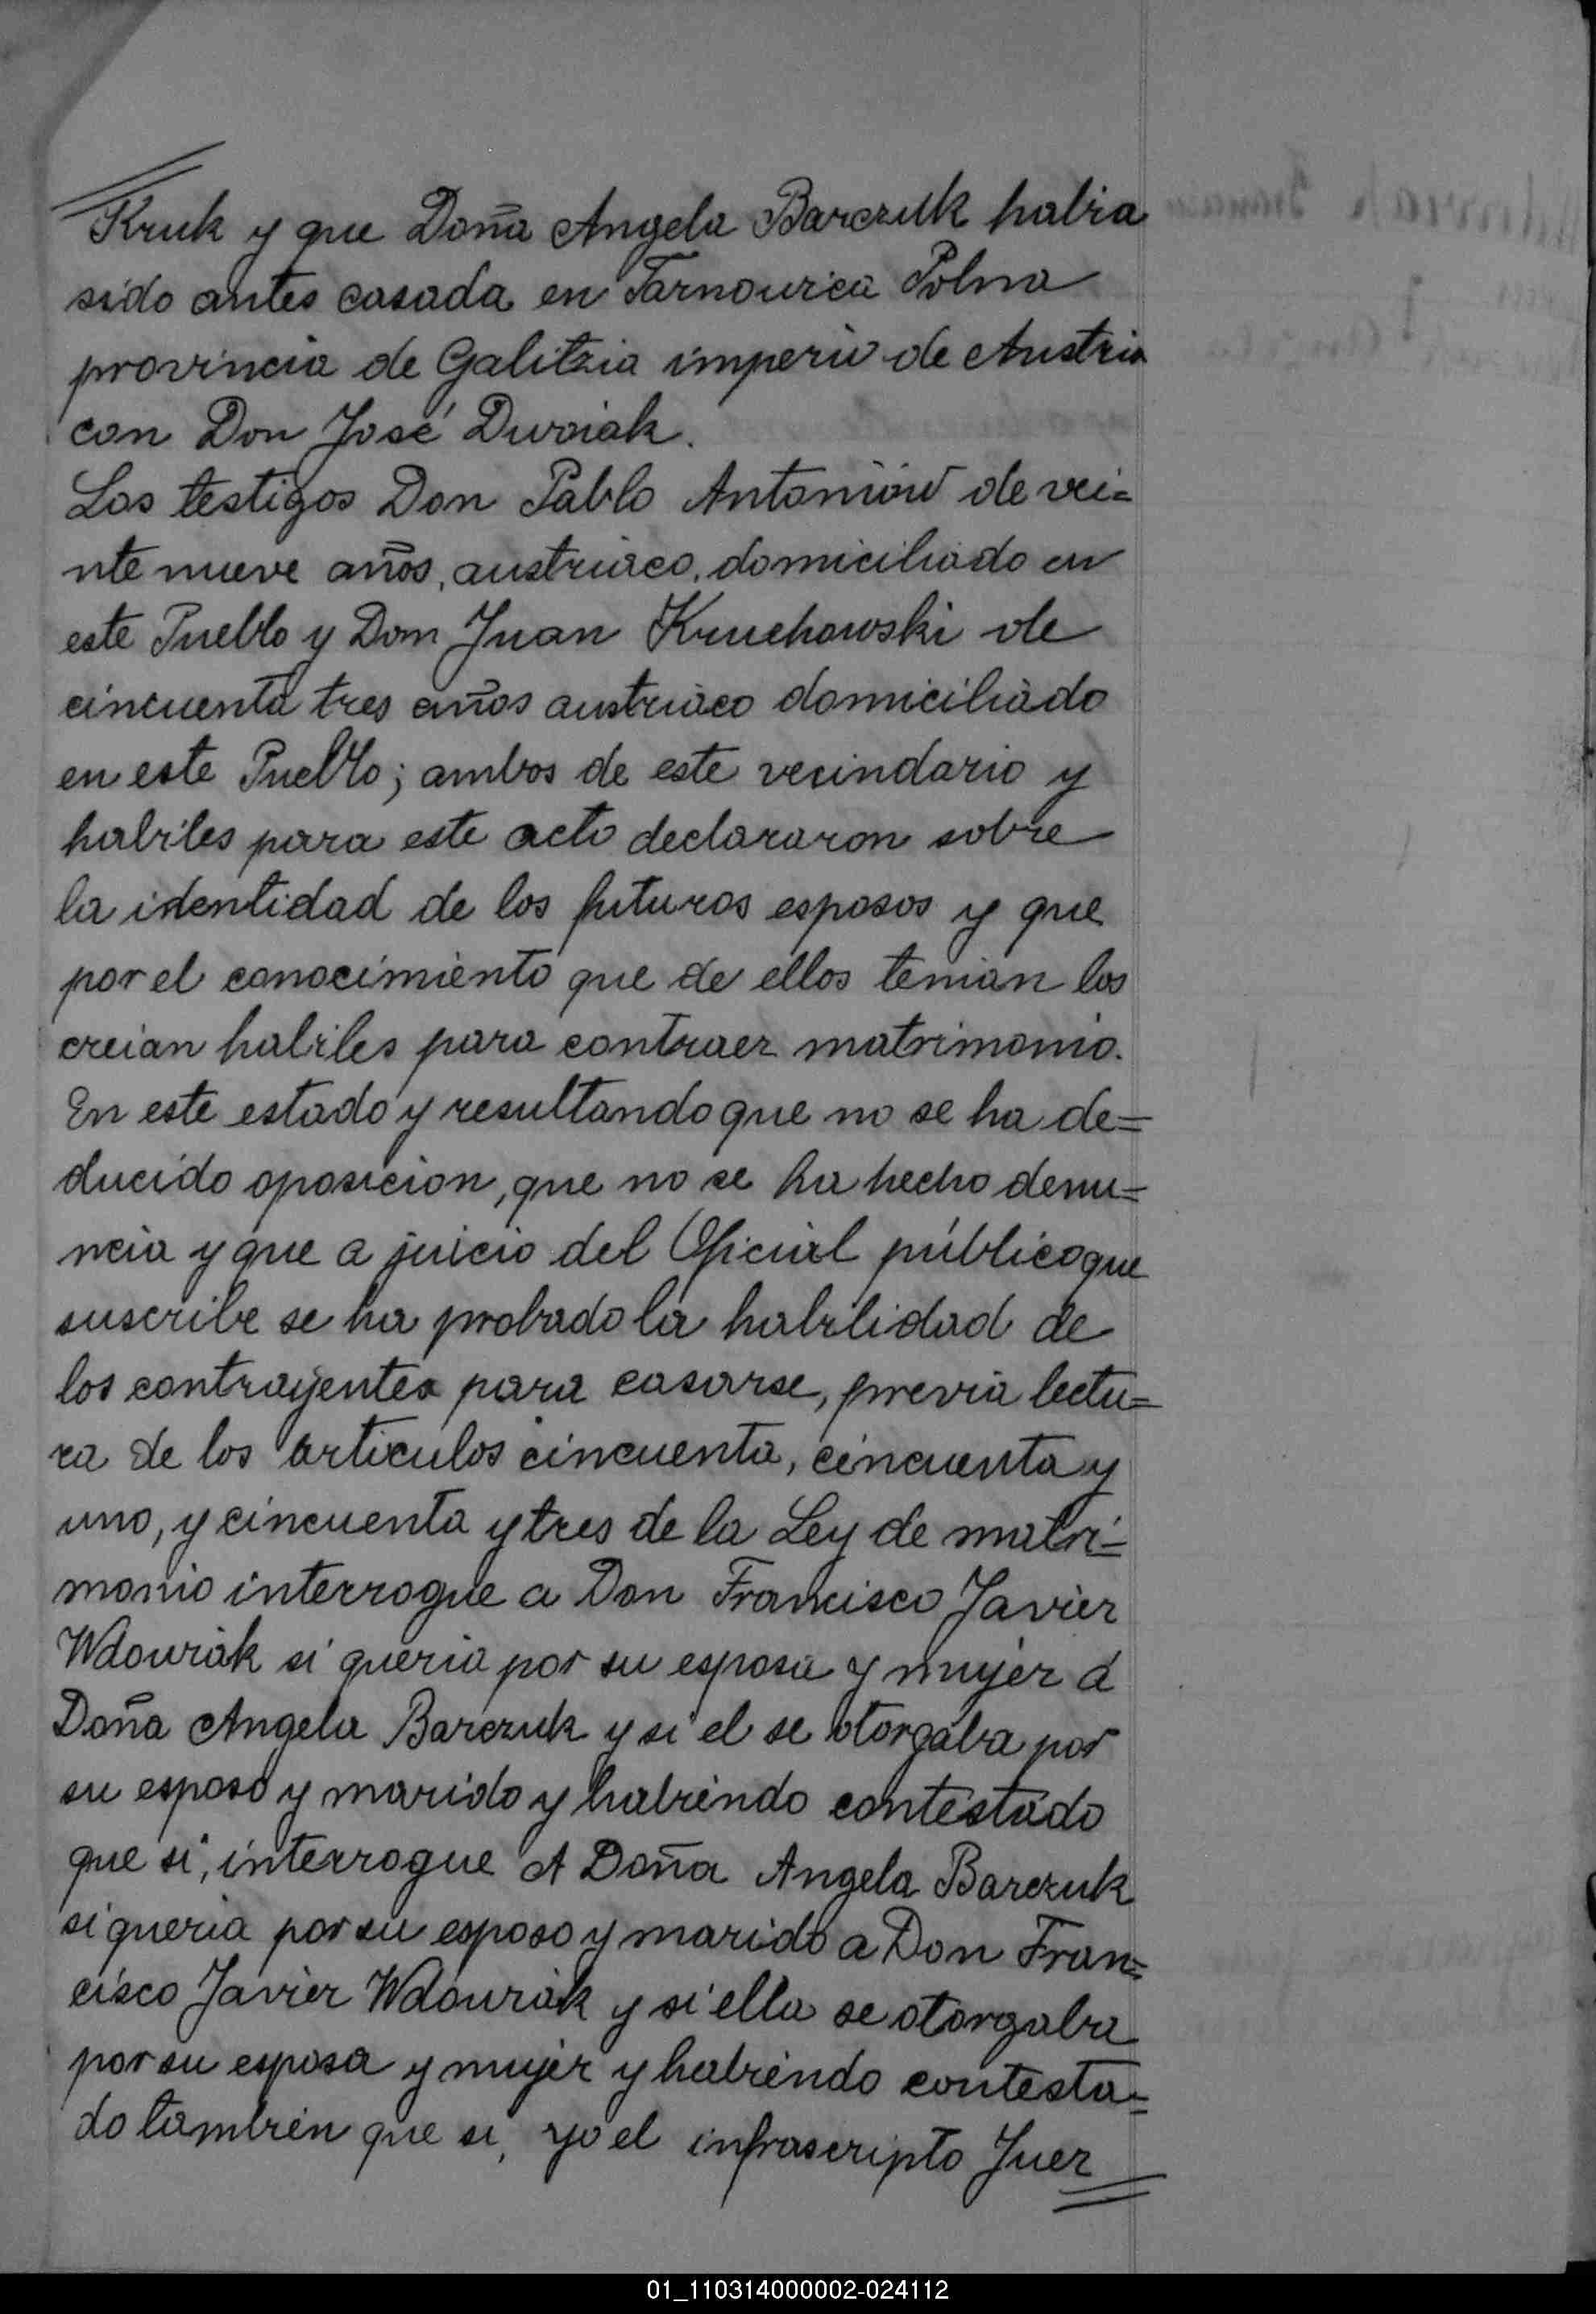 Kruk y que Doña Angela Barczuk habia
sido antes casada en Tarnowica Polna
provincia de Galitzia imperio de Austria
con Don José Dwoiak.
Los testigos Don Pablo Antoniów de vei=
nte nueve años, austriaco, domiciliado en
este Pueblo y Don Juan Kruchowski de
cincuenta tres años austriaco domiciliado
en este Pueblo; ambos de este vecindario y
habiles para este acto declararon sobre
la identidad de los futuros esposos y que
por el conocimiento que de ellos tenian los
creian habiles para contraer matrimonio.
En este estado y resultando que no se ha de=
ducido oposicion, que no se ha hecho denu=
ncia y que a juicio del Oficial público que
suscribe se ha probado la habilidad de
los contrayentes para casarse, previa lectu=
ra de los articulos cincuenta, cincuenta y
uno, y cincuenta y tres de la Ley de matri=
monio interrogue a Don Francisco Javier
Wdowiak si queria por su esposa y mujer á
Doña Angela Barczuk y si el se otorgaba por
su esposo y marido y habiendo contestado
que si, interrogue A Doña Angela Barczuk
si queria por su esposo y marido a Don Fran=
cisco Javier Wdowiak y si ella se otorgaba
por su esposa y mujer y habiendo contesta=
do tambien que si, yo el infrascripto Juez
01_110314000002-024112